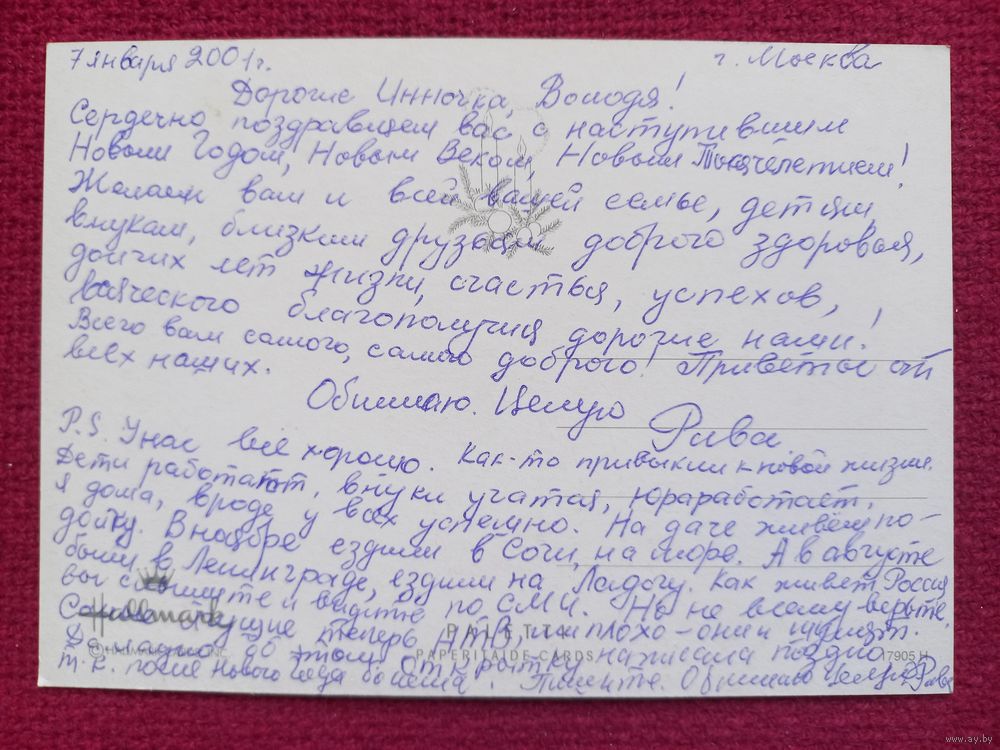 7 января 2001г. г. Москва
Дорогие Инночка, Володя!
Сердечно поздравляем вас с наступившим
Новым Годом, Новым Веком, Новым Тысячелетием!
Желаем вам и всей вашей семье, детям,
внукам, близким друзьям доброго здоровья,
долгих лет жизни, счастья, успехов,
всяческого благополучия дорогие наши!
Всего вам самого, самого доброго! Приветы от
всех наших.
Обнимаю. Целую
Рива
P.S. У нас всё хорошо. Как-то привыкли к новой жизни.
Дети работают, внуки учатся, Юра работает,
Я дома, вроде у всех успешно. На даче живём по-
долгу. В ноябре ездили в Сочи, на море. А в августе
были в Ленинграде, ездили на Ладогу. Как живёт Россия
вы слышите и видите по СМИ. Но не всему верьте.
теперь плохо – они и
Да ладно до открытку написала поздно
т.к. после Нового года болела. Пишите. Обнимаю Целую Рива
Hallmark
PALETTA
PAPERITAIDE CARDS
© HALLMARK INC.
17905H
www.ay.by